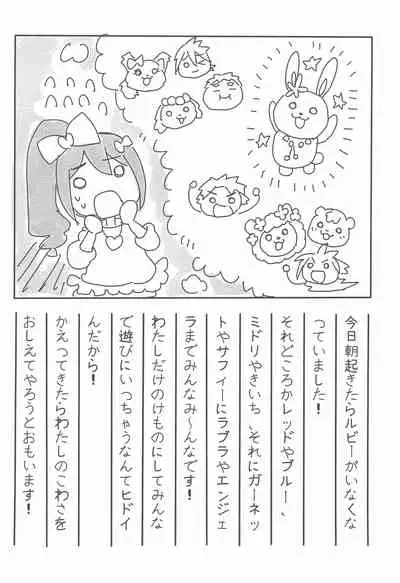 今日朝起きたらルビーがいなくな
っていました!
それどころかレッドやブルー、
ミドリやきいち、それにガーネッ
トやサフィーにラブラやエンジェ
ラまでみんなみ〜んなです!
わたしだけのけものにしてみんな
で遊びにいっちゃうなんてヒドイ
んだから!
かえってきたらわたしのこわさを
おしえてやろうとおもいます!